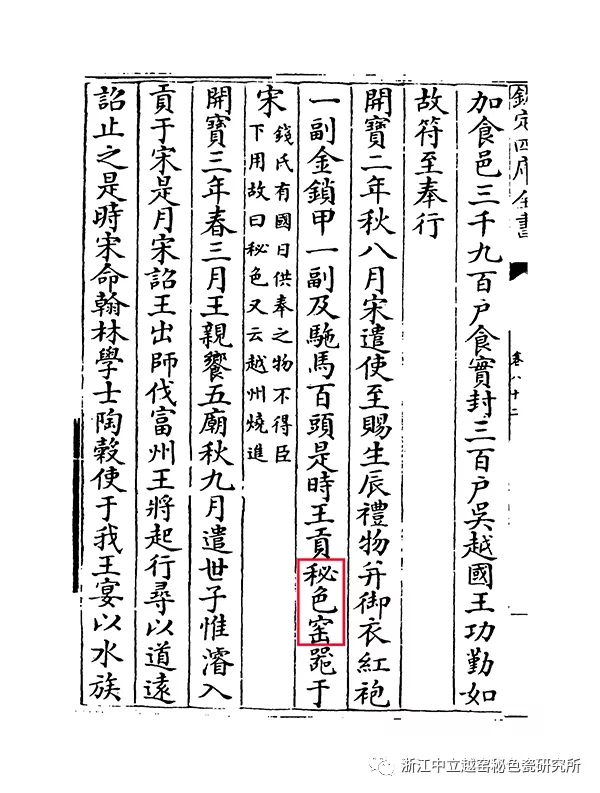 欽定四庫全書
卷八十二
加食邑三千九百户食實封三百户吳越國王功勤如
故符至奉行
開寶二年秋八月宋遣使至賜生辰禮物并御衣紅袍
一副金鎖甲一副及駞馬百頭是時王貢秘色窑噐于
宋
錢氏有國日供奉之物不得臣
下用故曰秘色又云越州燒進
開寶三年春三月王親饗五廟秋九月遣世子惟濬入
貢于宋是月宋詔王出師伐富州王將起行尋以道遠
詔止之是時宋命翰林學士陶穀使于我王宴以水族
浙江中立越窑秘色瓷研究所